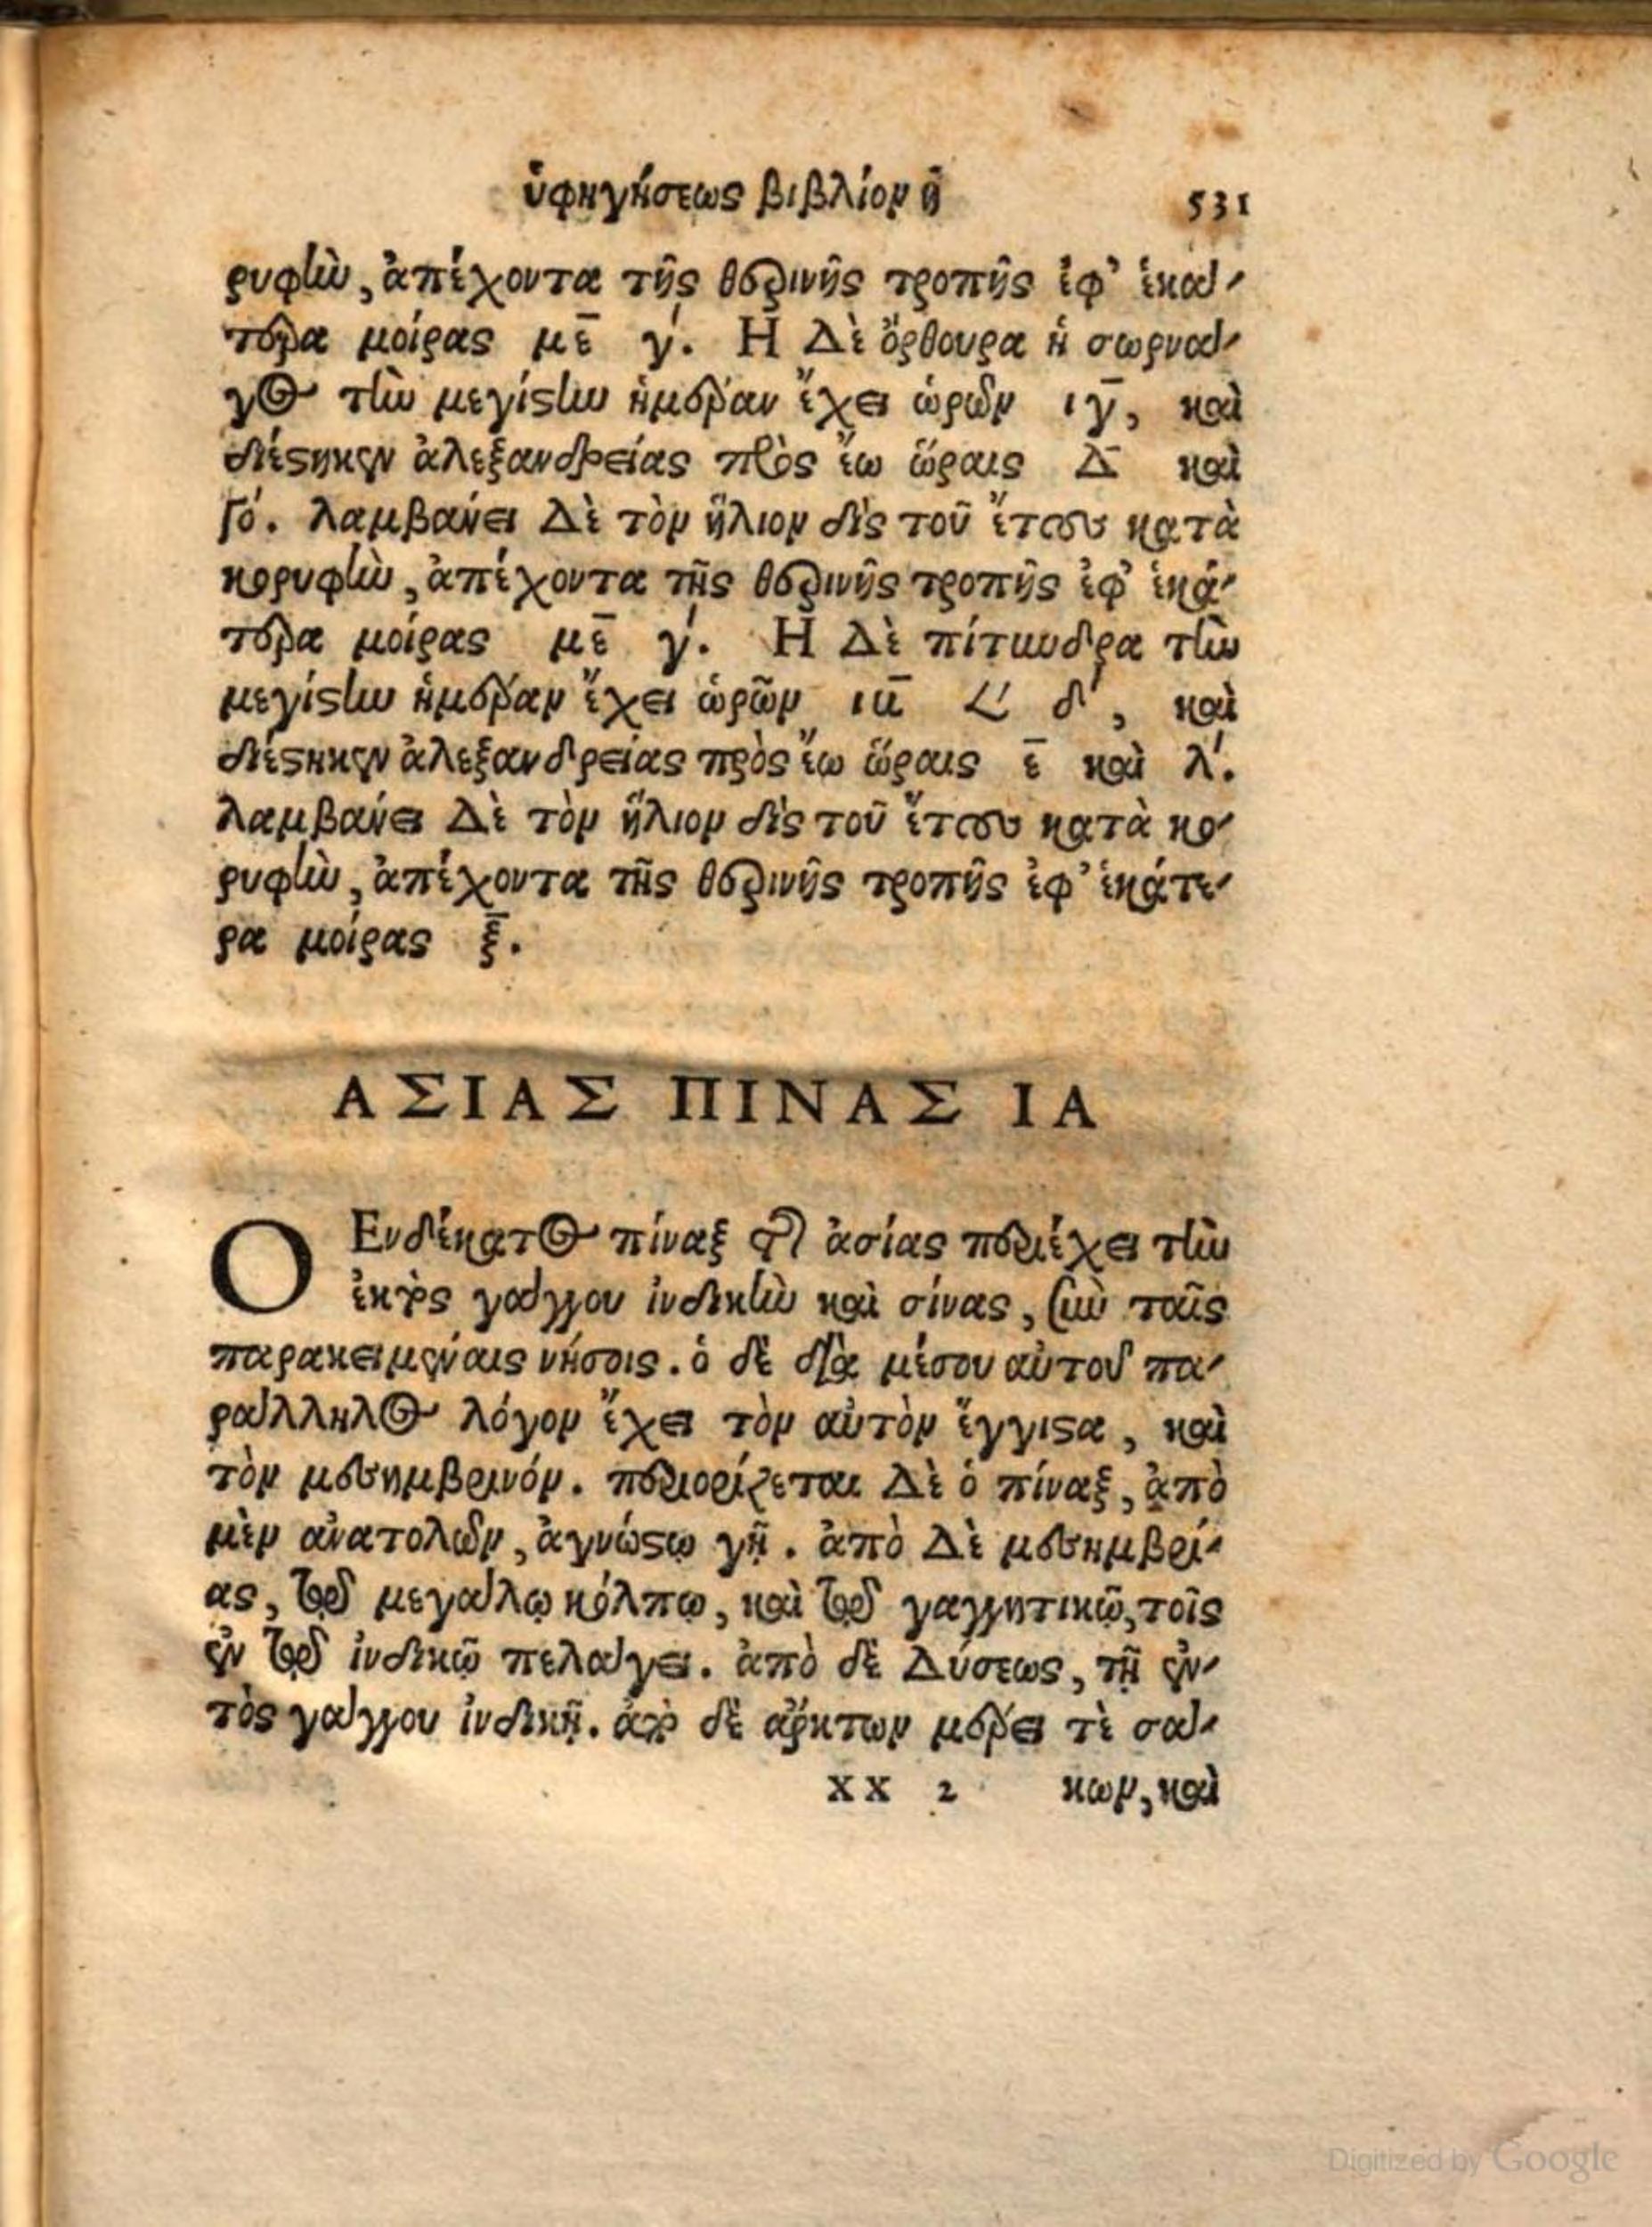 ὑφηγήσεως βιβλίον η̄ 531
ρυφὴν, ἀπέχοντα τῆς θερινῆς τροπῆς ἐφ' ἑκά-
τερα μοίρας με̄ γ'. Η Δὲ ὄρθουρα ἡ σωρνά-
γος τὴν μεγίστην ἡμέραν ἔχει ὡρῶν ιγ̄, καὶ
διέστηκεν ἀλεξανδρείας πρὸς ἕω ὥραις Δ̄ καὶ
γό. λαμβάνει Δὲ τὸν ἥλιον δὶς τοῦ ἔτους κατὰ
κορυφὴν, ἀπέχοντα τῆς θερινῆς τροπῆς ἐφ' ἑκά-
τερα μοίρας με̄ γ'. Η Δὲ πίτυνδρα τὴν
μεγίστην ἡμέραν ἔχει ὡρῶν ιϋ̄ ∠' δ', καὶ
διέστηκεν ἀλεξανδρείας πρὸς ἕω ὥραις ε̄ καὶ λ'.
λαμβάνει Δὲ τὸν ἥλιον δὶς τοῦ ἔτους κατὰ κο-
ρυφὴν, ἀπέχοντα τῆς θερινῆς τροπῆς ἐφ' ἑκάτε-
ρα μοίρας ξ̄.
ΑΣΙΑΣ ΠΙΝΑΣ ΙΑ
Ο Ενδέκατος πίναξ τῆς ἀσίας περιέχει τὴν
ἐκτὸς γάγγου ἰνδικὴν καὶ σίνας, σὺν ταῖς
παρακειμέναις νήσοις. ὁ δὲ διὰ μέσου αὐτοῦ πα-
ράλληλος λόγον ἔχει τὸν αὐτὸν ἔγγιστα, καὶ
τὸν μεσημβρινόν. περιορίζεται Δὲ ὁ πίναξ, ἀπὸ
μὲν ἀνατολῶν, ἀγνώστῳ γῇ. ἀπὸ Δὲ μεσημβρί-
ας, τῷ μεγάλῳ κόλπῳ, καὶ τῷ γαγγητικῷ, τοῖς
ἐν τῷ ἰνδικῷ πελάγει. ἀπὸ δὲ Δύσεως, τῇ ἐν-
τὸς γάγγου ἰνδικῇ. ἀπὸ δὲ ἄρκτων μέρει τὲ σά-
XX 2 κων, καὶ
Digitized by Google